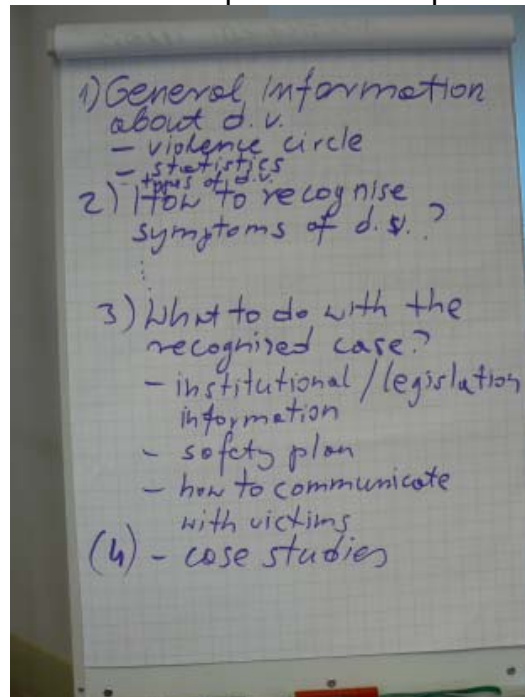 1) General information
about d.v.
- violence circle
- statistics
types of d.v.
2) How to recognise
symptoms of d.v.?
3) What to do with the
recognised case?
- institutional/legislation
information
- safety plan
- how to communicate
with victims
(4) - case studies